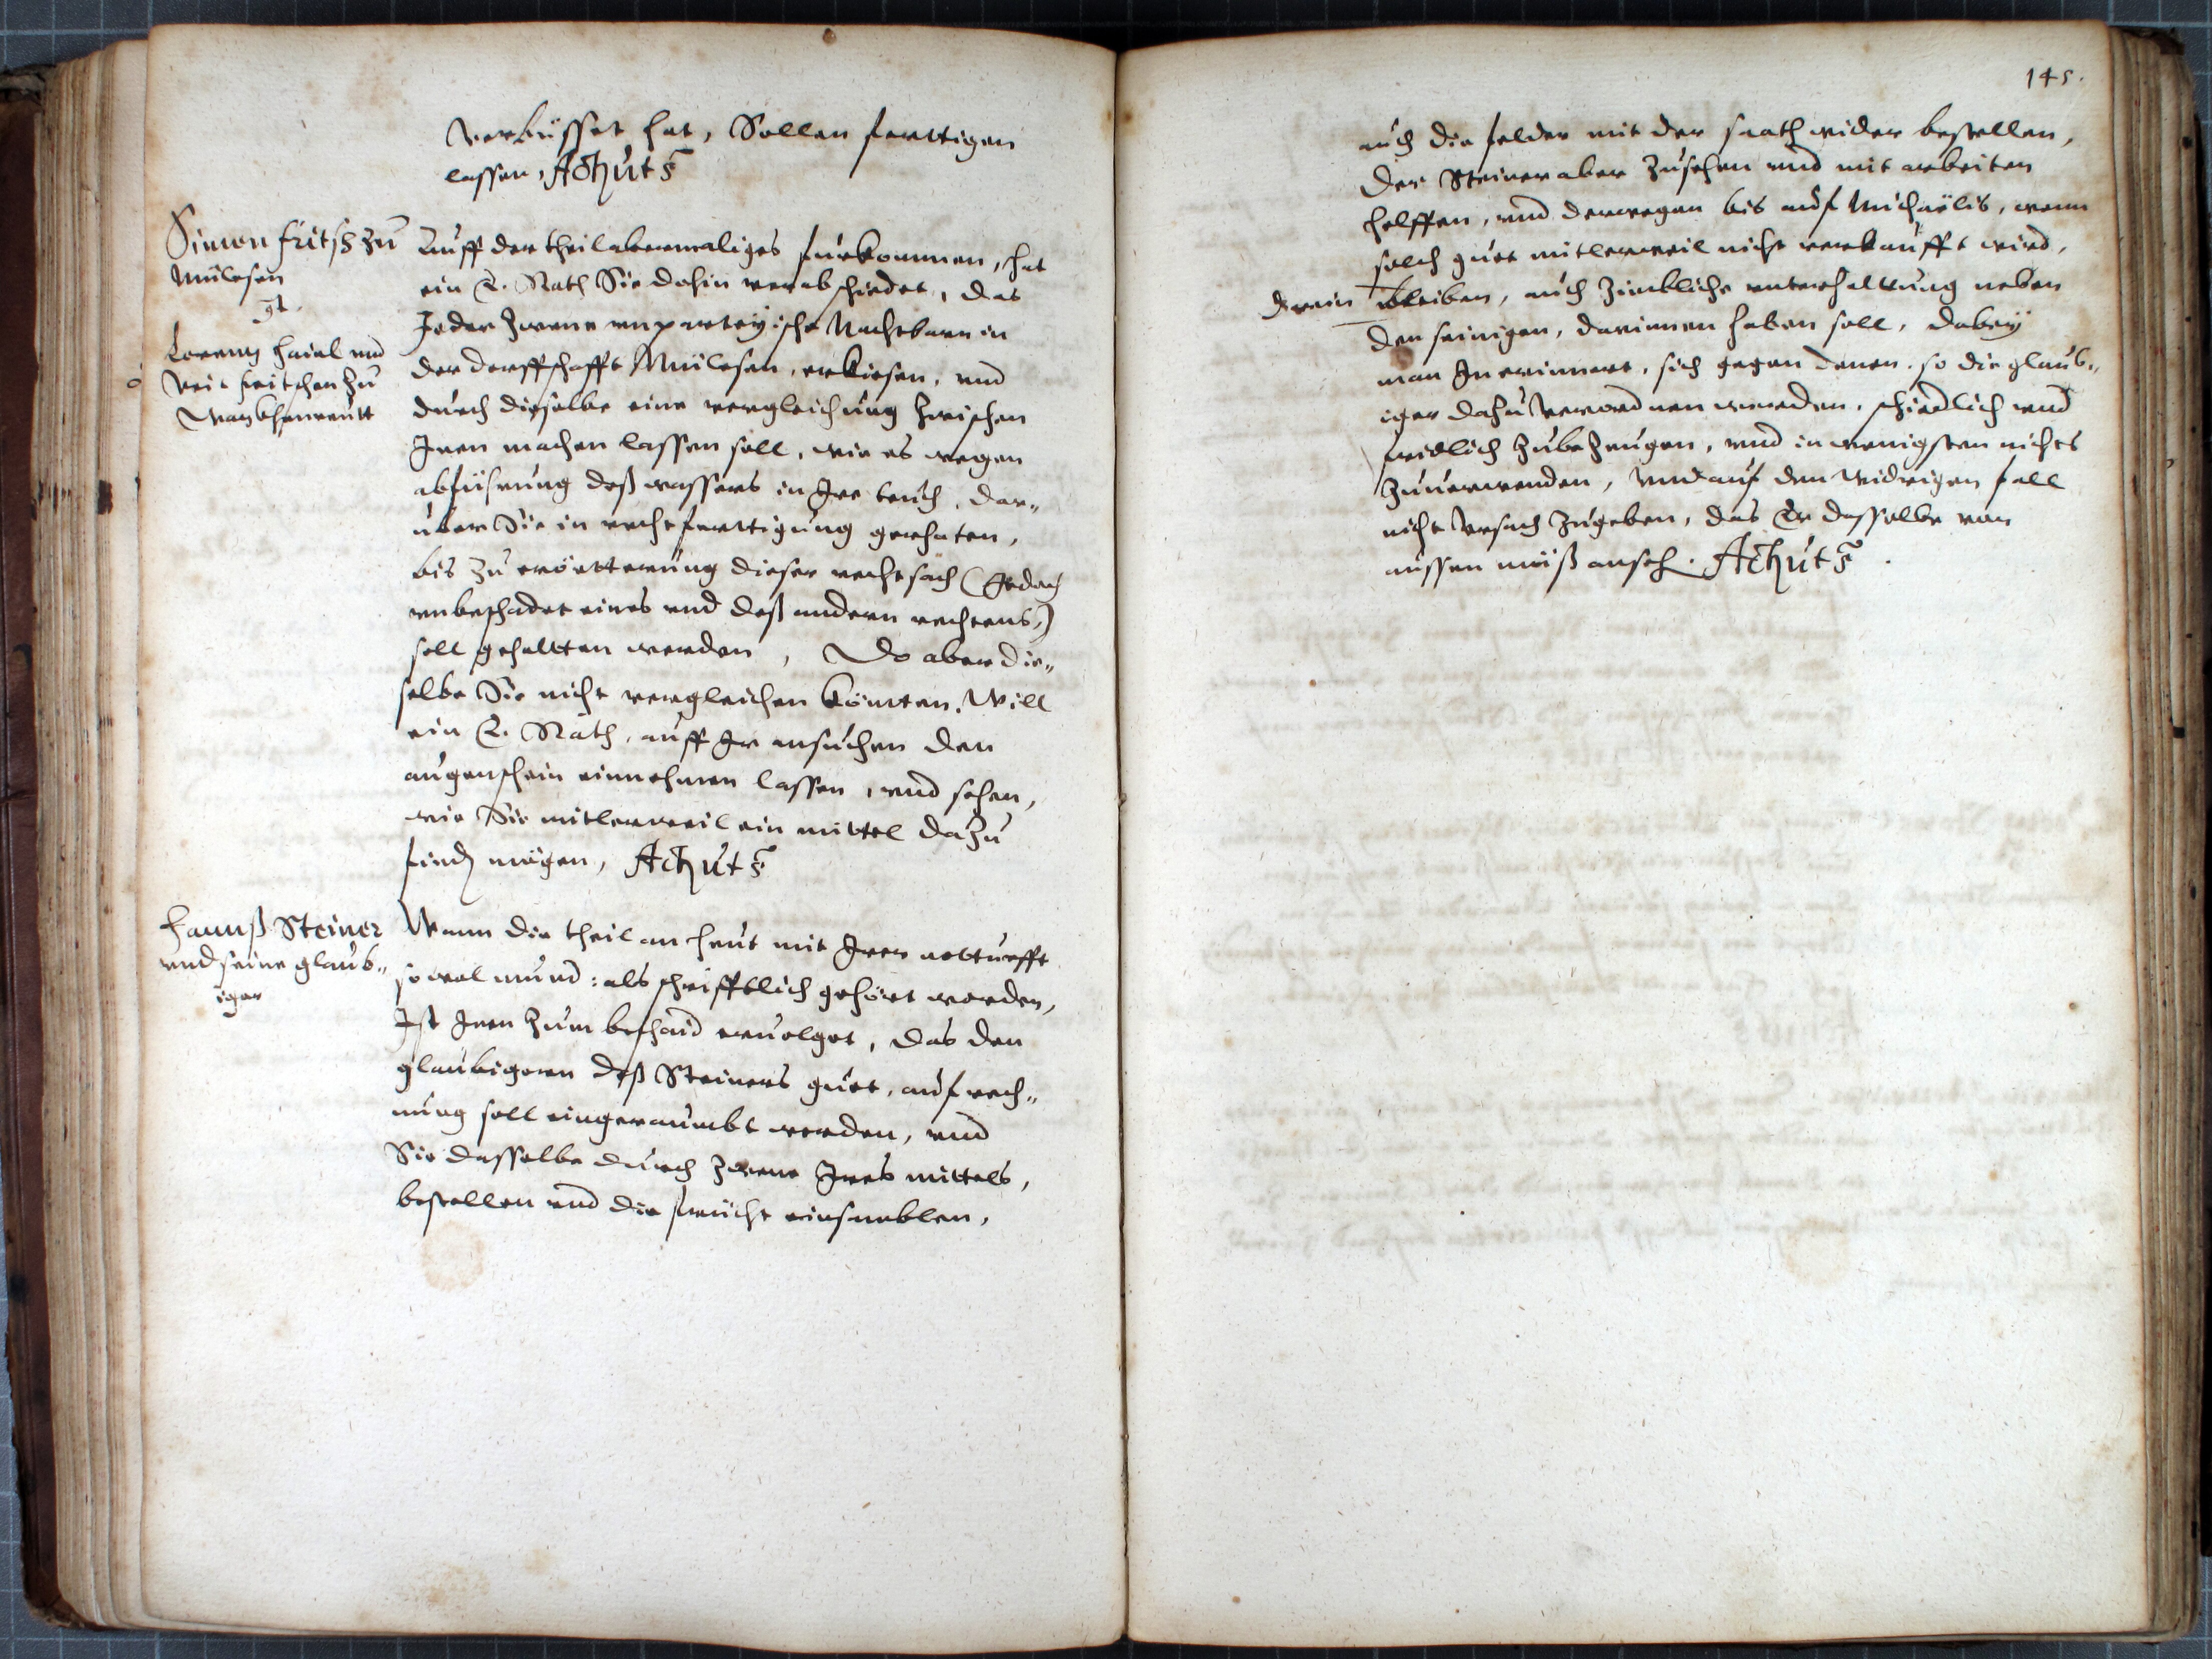 verbüsset hat, Sollen ferttigen
lassen, Act. ut s.
Simon fritsch zu
Mülesen
gt.
Lorentz haiel und
Veit
Auff der theil abermaliges furkommen, hat
ein E. Rath Sie dahin verabschiedet, das
Jeder zwene unparteyische Nachtbarn in
der dorffschafft Mülesen, erkiesen, und
durch dieselbe eine vergleichung zwischen
Jnen machen lassen soll, wie es wegen
abfürung deß wassers in Jre teuch, dar„
über Sie in rechtferttigung gerhaten,
bis zu erörtterung dieser rechtsach (Jedoch
unbeschadet eines und deß andern rechtens,)
soll gehaltten werden, Do aber die„
selbe Sie nicht vergleichen könten, Will
ein E. Rath, auff Jr ansuchen den
augenschein einnehmen lassen, und sehen,
wie Sie mitlerweil ein mittel dazu
finden mögen, Act. ut s.
Hannß Steiner
und seine glaub„
iger
Wann die theil an heut mit Jrer notturfft
so wol mund: als schrifftlich gehört worden,
Jst Jnen zum beschaid ervolget, das den
glaubigern deß Steiners guet, auf rech„
nung soll eingeraumbt werden, und
Sie dasselbe durch zwene Jres mittels,
bestellen und die früchte einsamblen,
145.
auch die felder mit der saath wider bestellen,
Der Steiner aber zusehen und mit arbeiten
helffen, und derwegen bis auf Michaëlis, wenn
solch guet mitlerweil nicht verkaufft wird,
drein bleiben, auch zimbliche unterhalttung neben
den seinigen, darinnen haben soll, dabey
man Jn erinnert, sich gegen denen, so die glaub„
iger dazu verordnen werden, schiedlich und
fridlich zubezeugen, und in wenigsten nichts
zuverwenden, und auf den widrigen fall
nicht ursach zugeben, das Er dasselbe von
aussen müß anseh. Act. ut s.